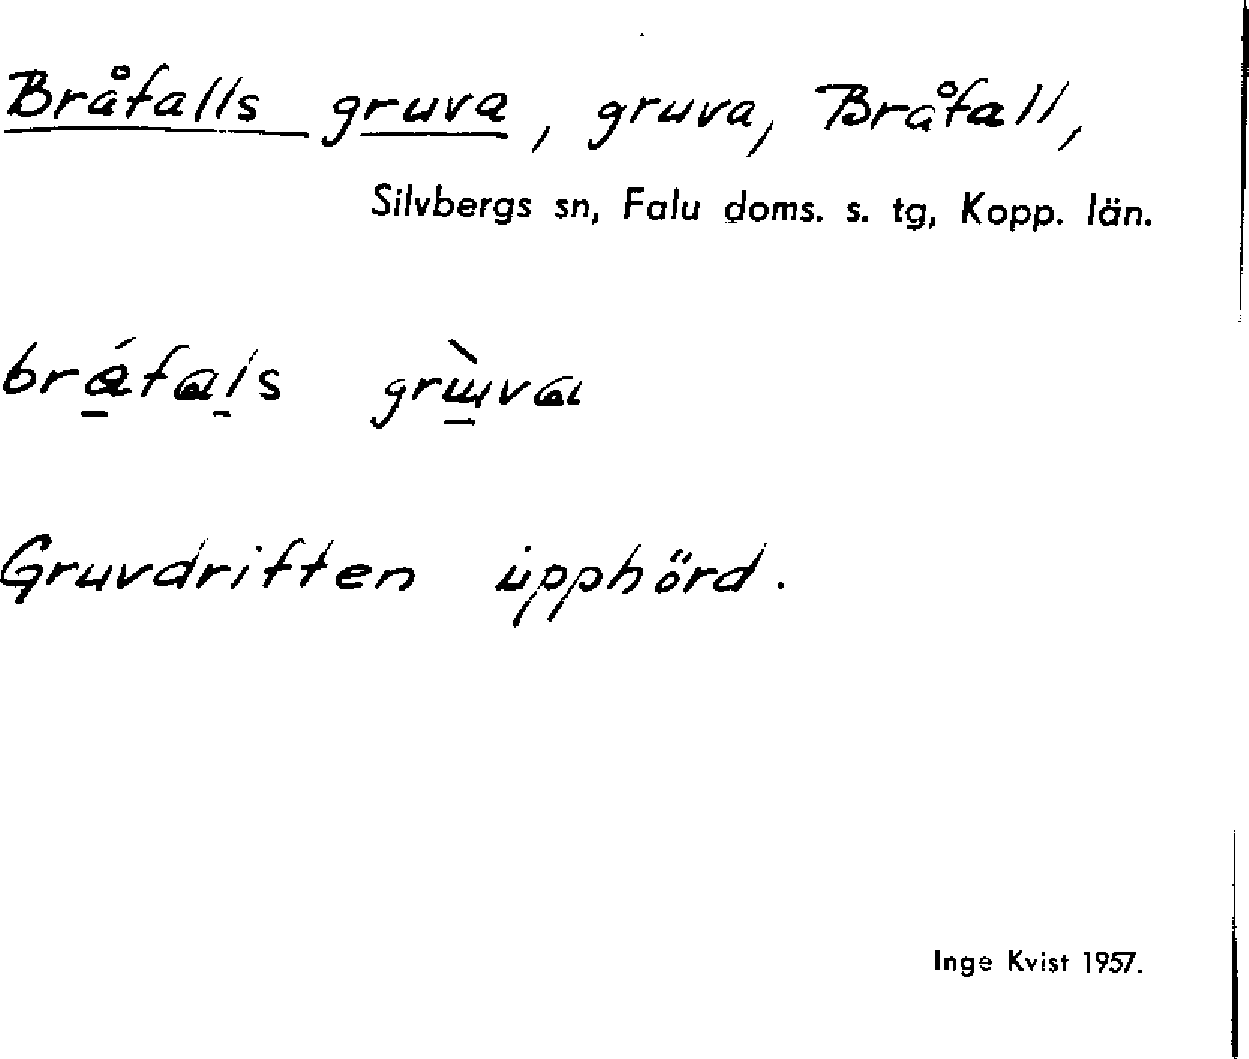 Bråfalls gruva, gruva, Bråfall,
Silvbergs sn, Falu doms. s. tg, Kopp. län.
Gruvdriften upphörd.
Inge Kvist 1957.